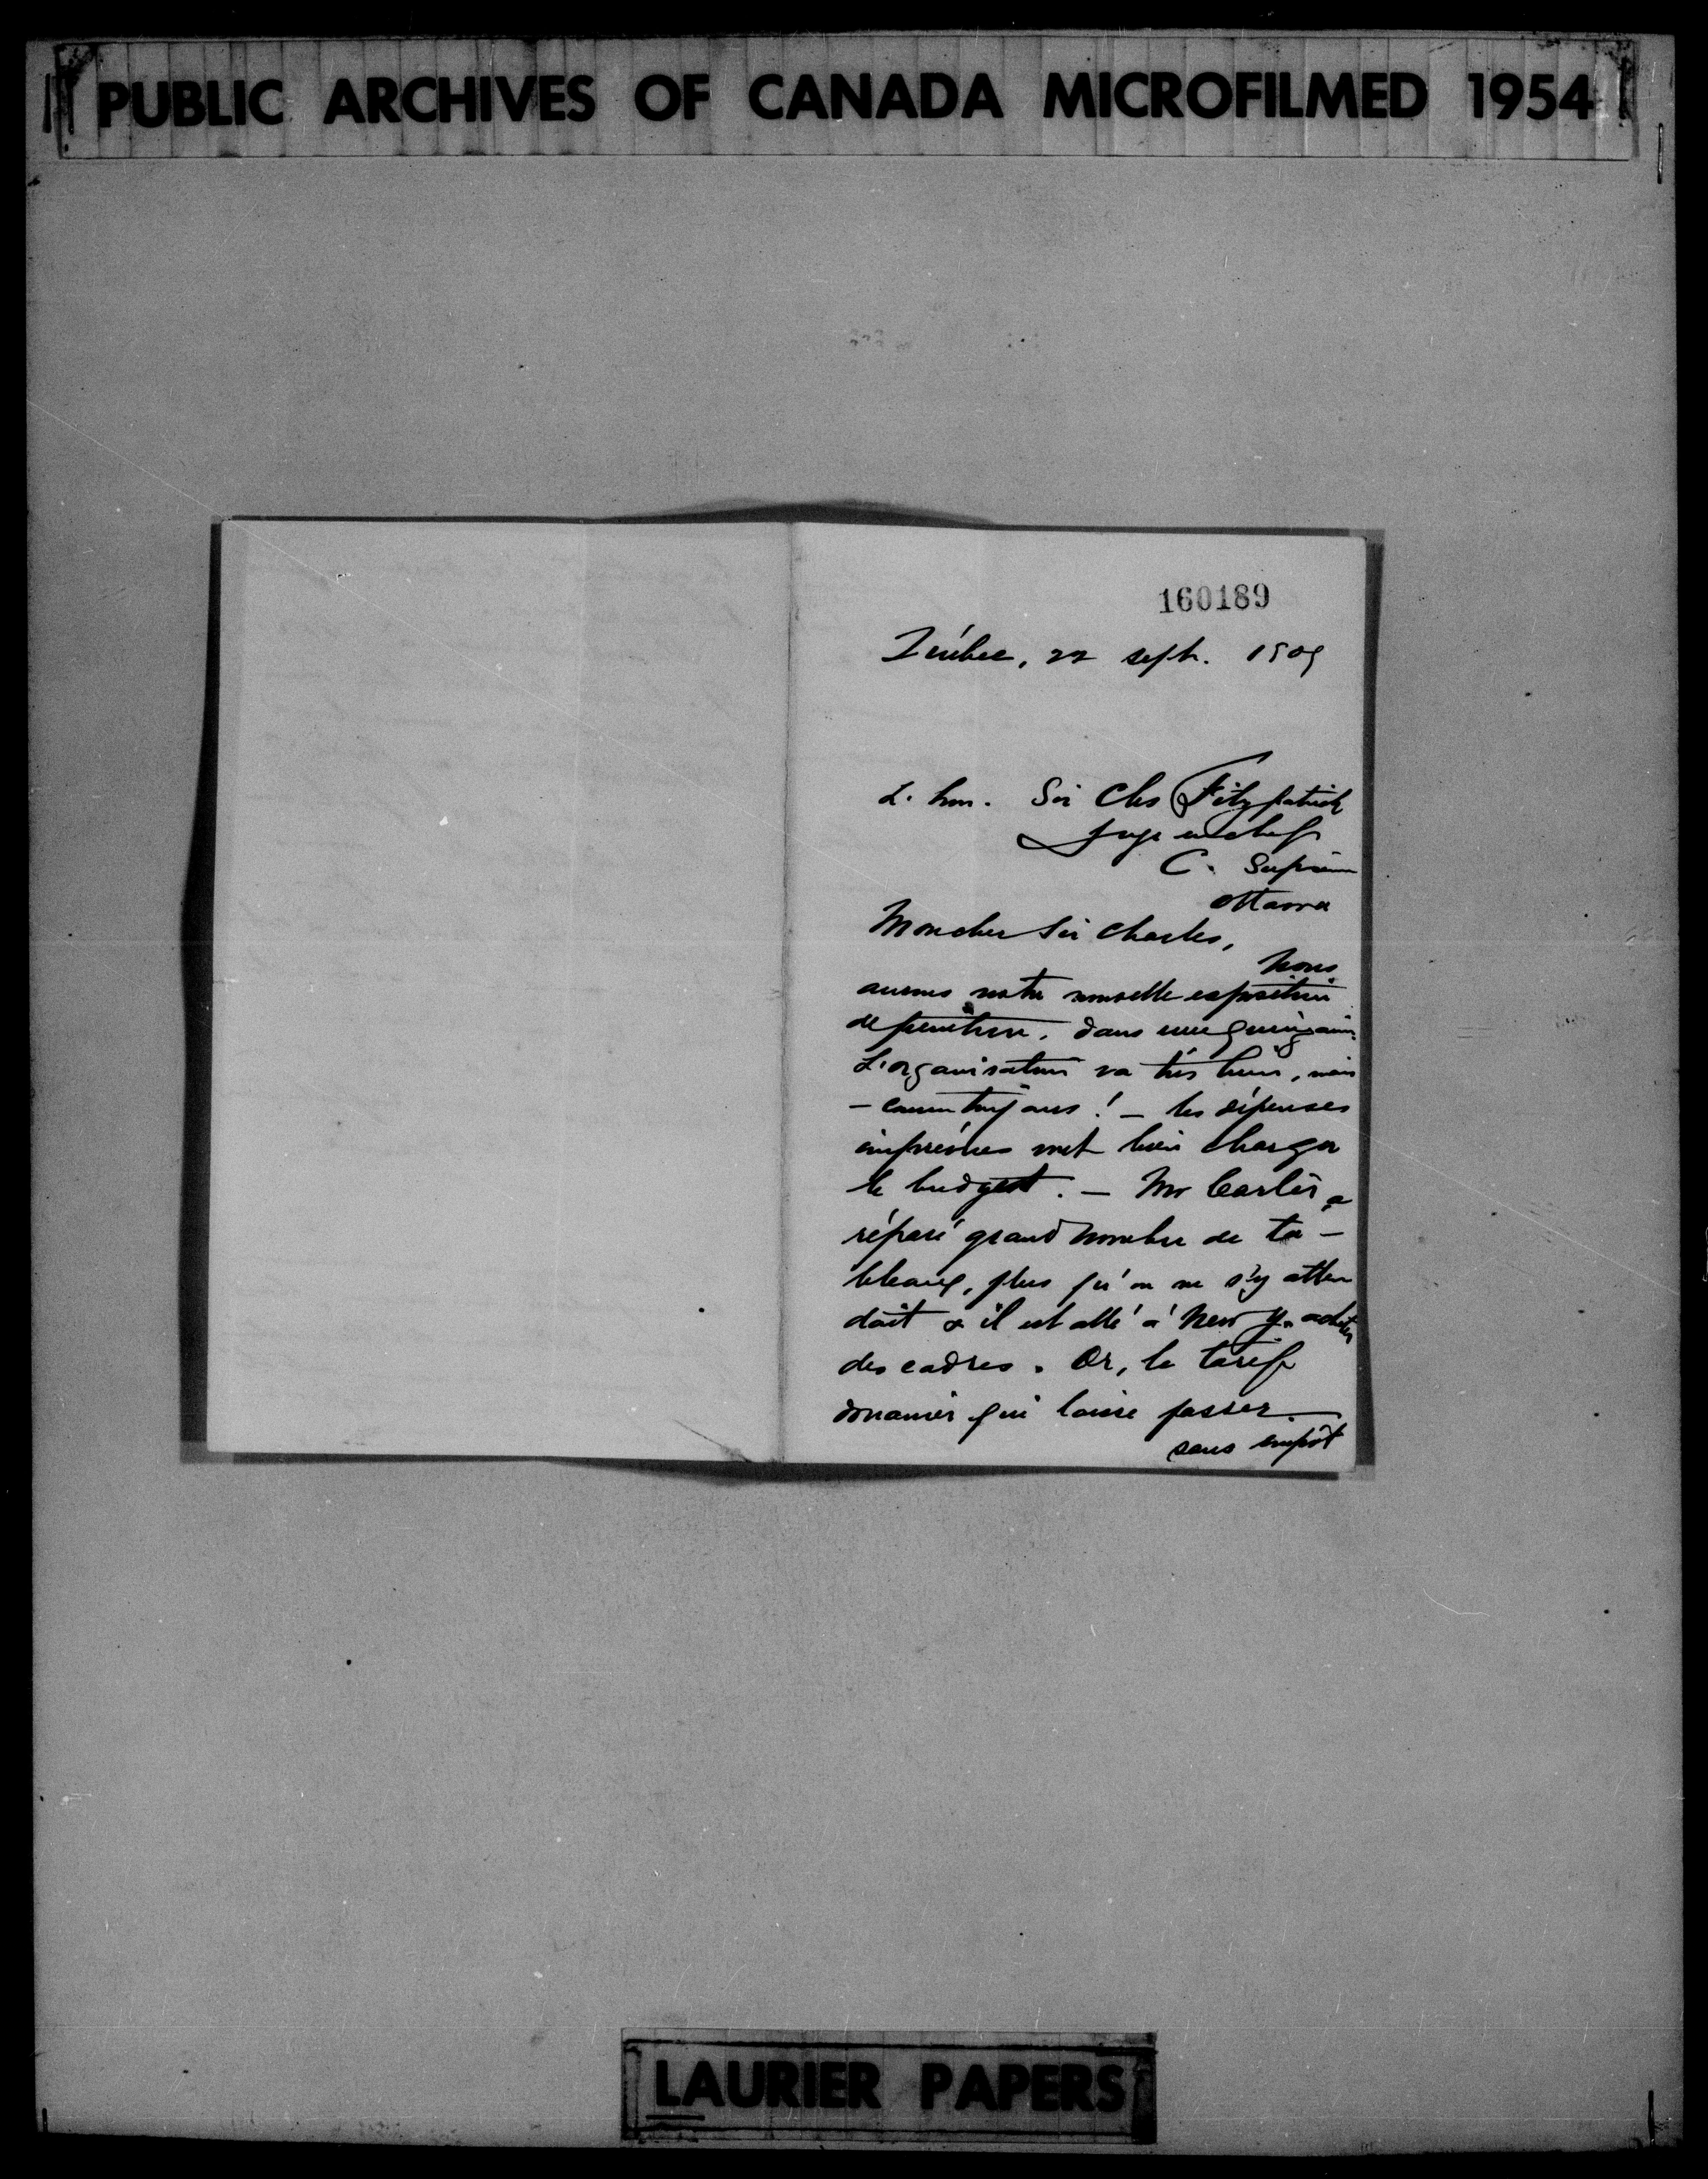 PUBLIC ARCHIVES OF CANADA MICROFILMED 1954
160189
Québec, 22 sept. 1909
L'hon. Sir Chs Fitzpatrick
Juge en chef
C. Suprême
Ottawa
Mon cher Sir Charles,
Nous
aurons notre nouvelle exposition
de peinture. dans une quinzaine.
L'organisation va très bien, mais
– comme toujours! – les dépenses
imprévues vont bien charger
le budget. – Mr Carlin a
réparé grand nombre de ta–
bleaux, plus qu'on ne s'y atten
dait & il est allé à New Y. acheter
des cadres. Or, le tarif
douanier qui laisse passer
sans impôt
LAURIER PAPERS